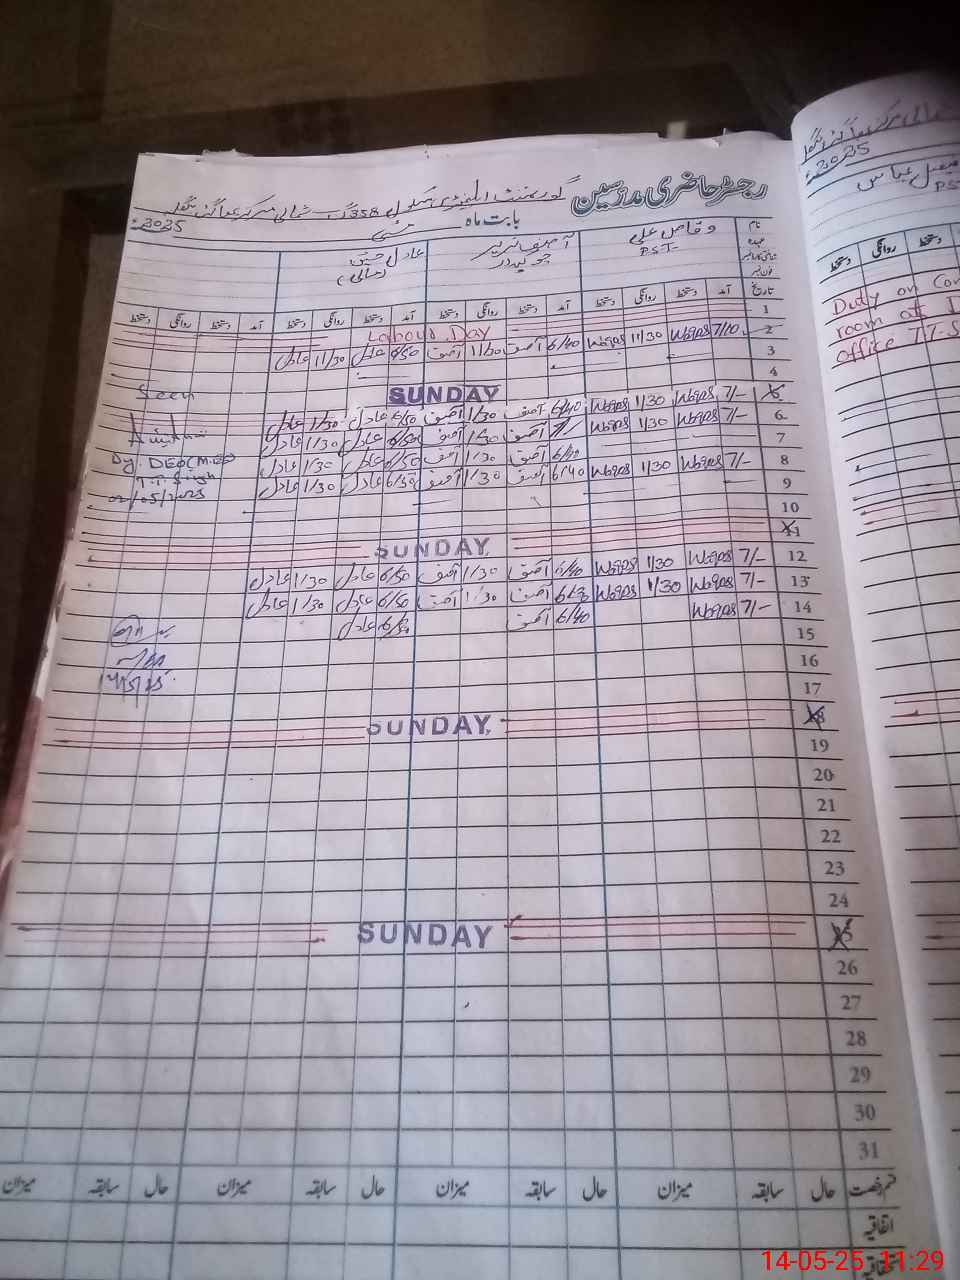 رجسٹر حاضری مدرسین گورنمنٹ ایلیمنٹری سکول 358 گ ب شمالی مرکز
بابت ماہ مئی 2025ء
نام وقاص علی آصف نذیر عادل حسین
عہدہ PST چوکیدار (مالی)
تاریخ آمد دستخط روانگی دستخط آمد دستخط روانگی دستخط آمد دستخط روانگی دستخط آمد دستخط روانگی دستخط
1 Labour Day
2 7/10 Waqas 11/30 Waqas 6/40 آصف 11/30 آصف 6/50 عادل 11/30 عادل
3
4 SUNDAY
Seen
5 7/- Waqas 1/30 Waqas 6/40 آصف 1/30 آصف 6/50 عادل 1/30 عادل
6 7/- Waqas 1/30 Waqas آصف 1/30 آصف 6/50 عادل 1/30 عادل
7 6/40 آصف 1/30 آصف 6/50 عادل 1/30 عادل
8 7/- Waqas 1/30 Waqas 6/40 آصف 1/30 آصف 6/50 عادل 1/30 عادل
Dy. DEO (M.EE)
T.T.Singh
02/05/2025
9
10
11 SUNDAY
12 7/- Waqas 1/30 Waqas 6/40 آصف 1/30 آصف 6/50 عادل 1/30 عادل
13 7/- Waqas 1/30 Waqas آصف 1/30 آصف 6/50 عادل 1/30 عادل
14 7/- Waqas 6/40 آصف 6/50 عادل
15
16
17
18 SUNDAY
19
20
21
22
23
24
25 SUNDAY
26
27
28
29
30
31
قسم رخصت حال سابقہ میزان حال سابقہ میزان حال سابقہ میزان حال سابقہ میزان
اتفاقیہ
2025ء
فیصل عباس
PST
دستخط روانگی دستخط
Duty on Con
room at D
office T.T.S
14-05-25 11:29